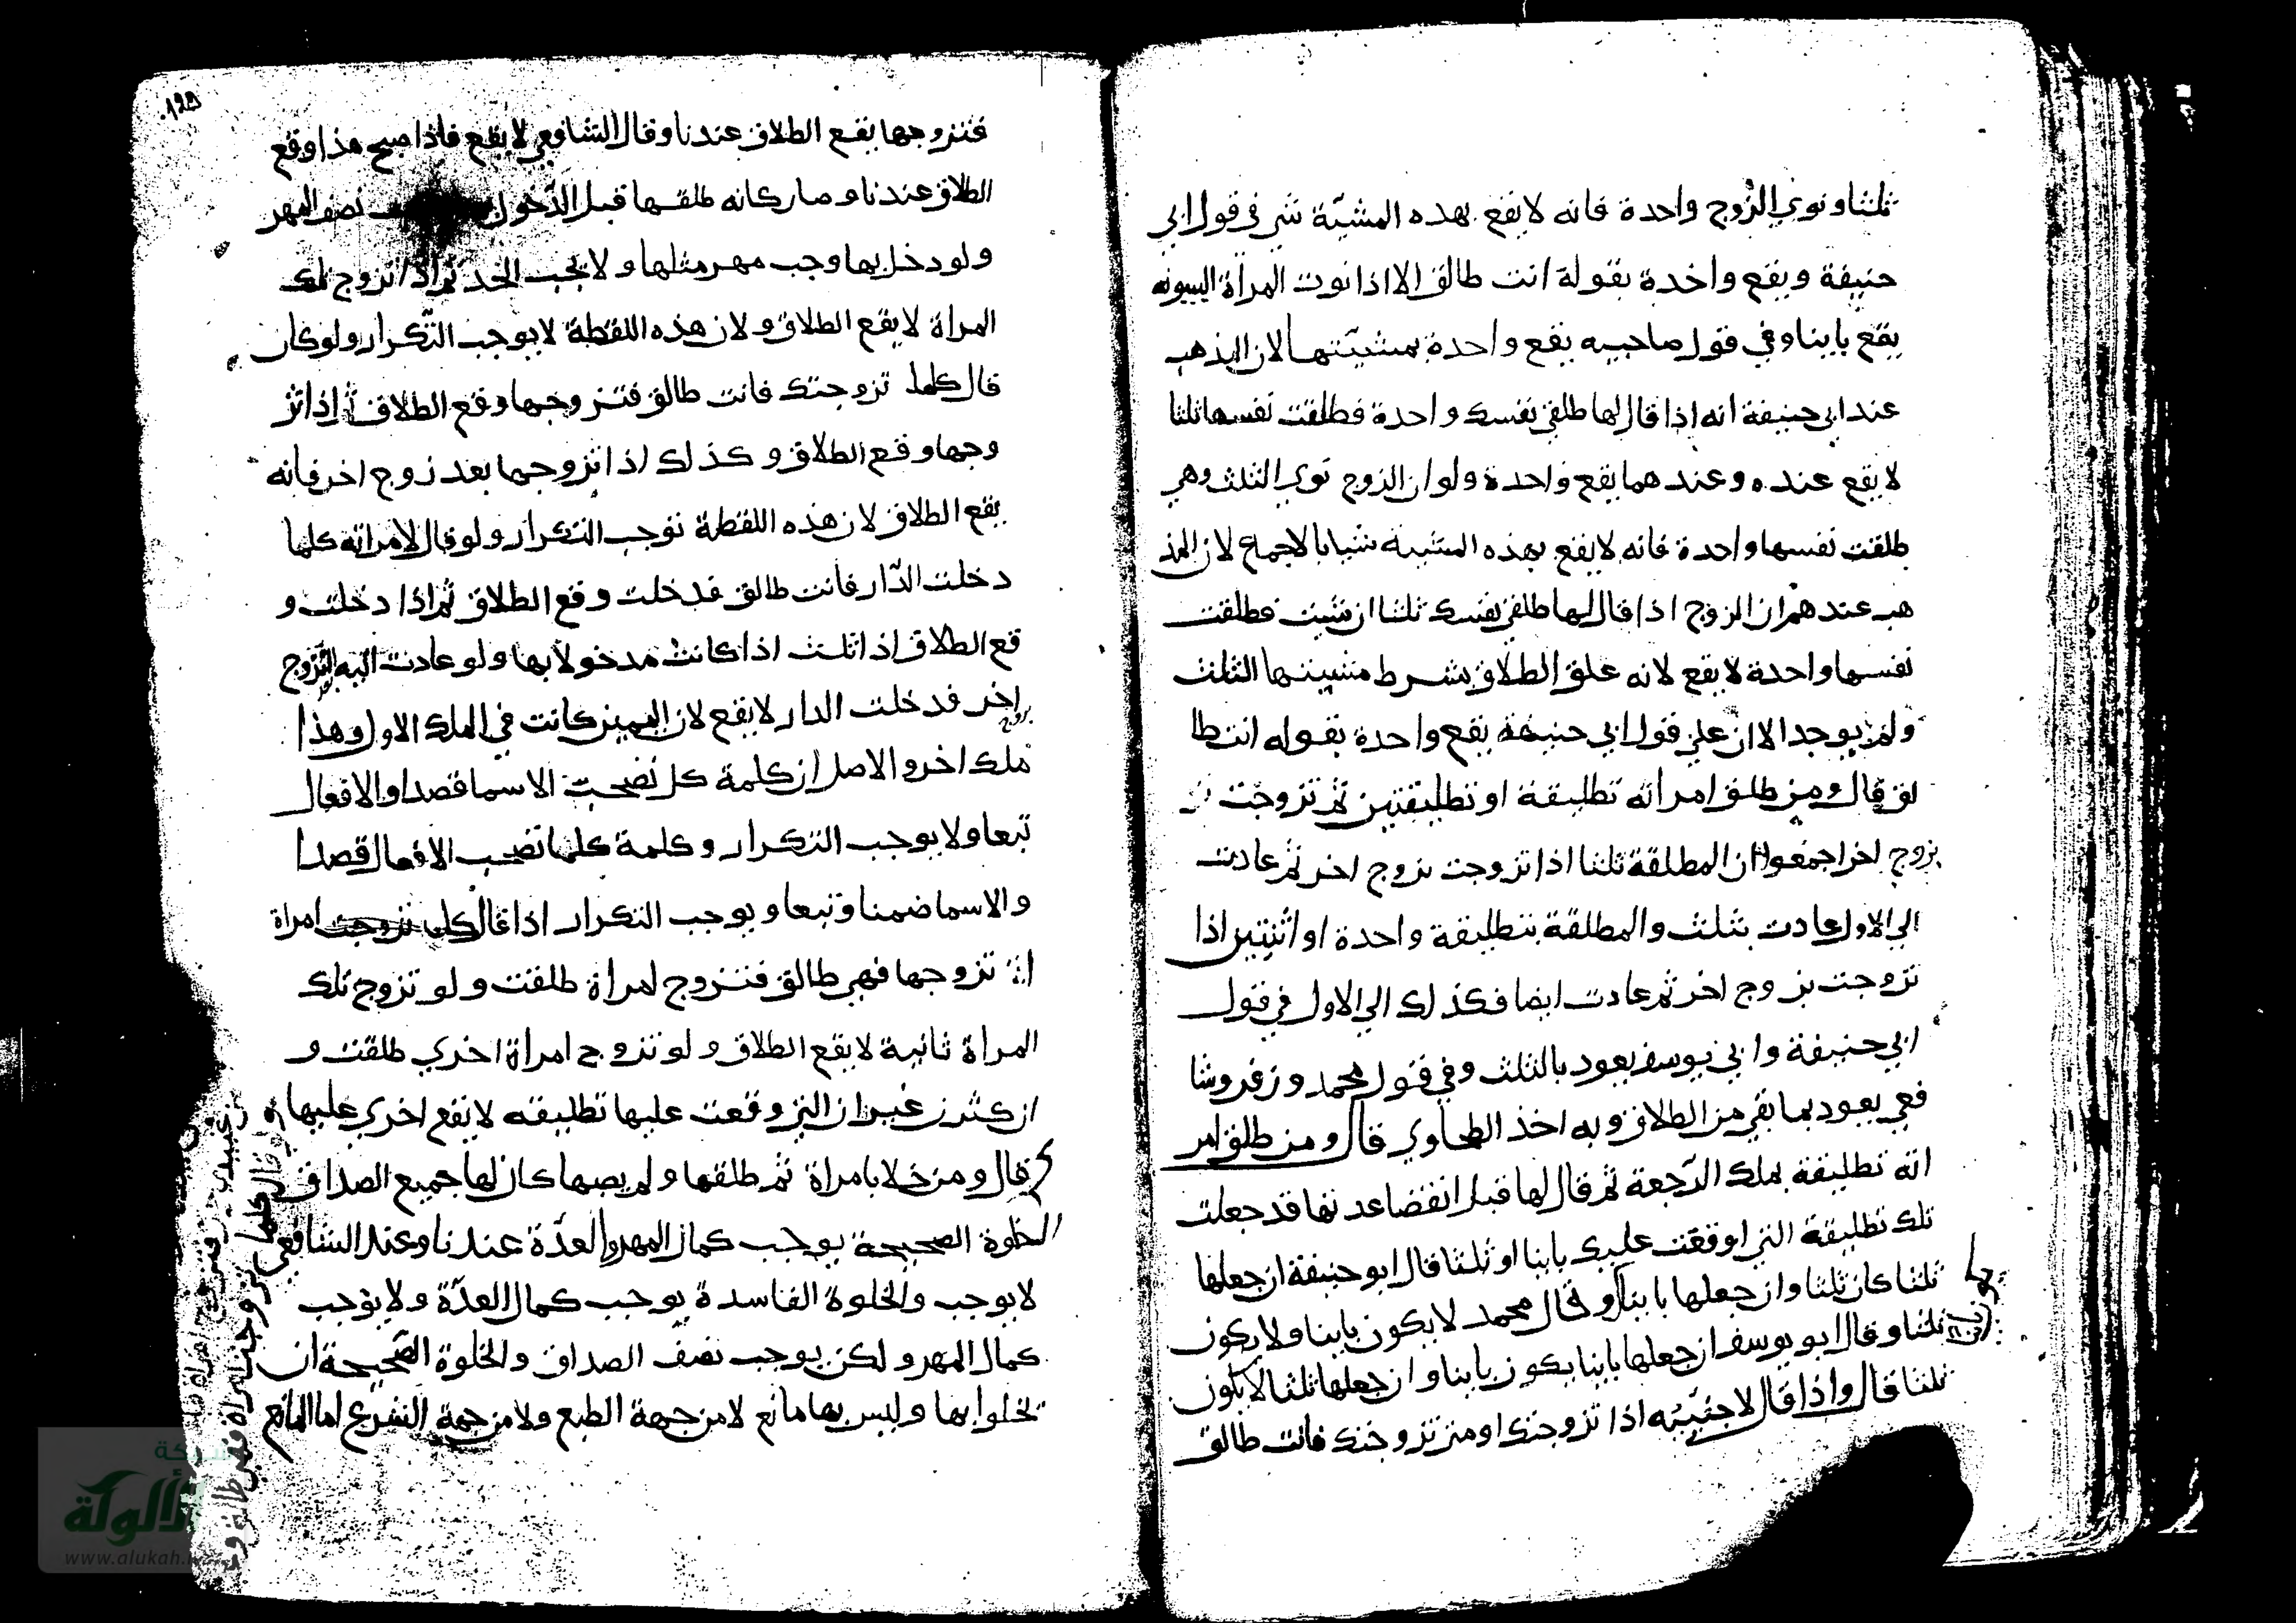 ثلثا ونوي الزوج واحدة فانه لا يقع بهذه المشيّة شي في قول ابي
حنيفة ويقع واحدة بقولة انت طالق الا اذا نوت المراة البينونه
يقع باينا وفي قول صاحبيه يقع واحدة بمشيّتها لان المذهب
عند ابي حنيفة انه اذا قال لها طلقي نفسك واحدة فطلقت نفسها ثلثا
لا يقع عنده وعندهما يقع واحدة ولو ان الزوج نوي الثلث وهي
طلقت نفسها واحدة فانه لا يقع بهذه المشيه شيا بالاجماع لان المذ
هب عندهم ان الزوج اذا قال لها طلقي نفسك ثلثا ان شيت فطلقت
نفسها واحدة لا يقع لانه علق الطلاق بشرط مشيتها الثلث
ولم يوجد الا ان علي قول ابي حنيفة يقع واحدة بقوله انت طا
لق قال ومن طلق امراته تطليقة او تطليقتين ثم تزوجت
بزوج اخر اجمعوا ان المطلقة ثلثا اذا تزوجت بزوج اخر ثم عادت
الي الاول عادت بثلث والمطلقة بتطليقة واحدة او اثنتين اذا
تزوجت بزوج اخر ثم عادت ايضا فكذلك الي الاول في قول
ابي حنيفة وابي يوسف يعود بالثلث وفي قول محمد وزفر وشا
فعي يعود بما بقي من الطلاق وبه اخذ الطحاوي قال ومن طلق امر
اته تطليقة يملك الرّجعة ثم قال لها قبل انقضا عدتها قد جعلت
تلك تطليقة التي اوقعت عليك باينا او ثلثا قال ابو حنيفة ان جعلها
ثلثا كان ثلثا وان جعلها باينا وقال محمد لا يكون باينا ولا يكون
ثلثا وقال ابو يوسف ان جعلها باينا يكون باينا وان جعلها ثلثا لا يكون
ثلثا قال واذا قال لاجنبيّه اذا تزوجتك او متي تزوجتك فانت طالق
فتزوجها يقع الطلاق عندنا وقال الشافعي لا يقع فاذا صح هذا وقع
الطلاق عندنا وصار كانه طلقها قبل الدّخول نصف المهر
ولو دخل بها وجب مهر مثلها ولا يجب الحد ثم اذا تزوج تلك
المراة لا يقع الطلاق ولان هذه اللفظة لا يوجب التّكرار ولو كان
قال كلما تزوجتك فانت طالق فتزوجها وقع الطلاق ثم اذا تز
وجها وقع الطلاق وكذلك اذا تزوجها بعد زوج اخر فانه
يقع الطلاق لان هذه اللفظة توجب التكرار ولو قال لامراته كلما
دخلت الدّار فانت طالق فدخلت وقع الطلاق ثم اذا دخلت و
قع الطلاق اذا ثلث اذا كانت مدخولا بها ولو عادت اليه بعد التزوج
بزوج اخر فدخلت الدار لا يقع لان اليمين كانت في الملك الاول وهذا
ملك اخر والاصل ان كلمة كل تصحب الاسما قصدا والافعال
تبعا ولا يوجب التكرار وكلمة كلما تصحب الافعال قصدا
والاسما ضمنا وتبعا ويوجب التكرار اذا قال كل امراة
تزوجها فهي طالق فتزوج امراة طلقت ولو تزوج تلك
المراة ثانية لا يقع الطلاق ولو تزوج امراة اخري طلقت و
ان كثرن غير ان التي وقعت عليها تطليقه لا يقع اخري عليها
قال ومن خلا بامراة ثم طلقها ولم يصبها كان لها جميع الصداق
الخلوة الصحيحة يوجب كمال المهر والعدّة عندنا وعند الشافعي
لا يوجب والخلوة الفاسدة يوجب كمال العدّة ولا يوجب
كمال المهر ولكن يوجب نصف الصداق والخلوة الصّحيحة ان
يخلوا بها وليس بها مانع لا من جهة الطبع ولا من جهة الشرع اما المانع
قال كلما تزوجت امراة فهي طالق
شبكة
الألوكة
www.alukah.